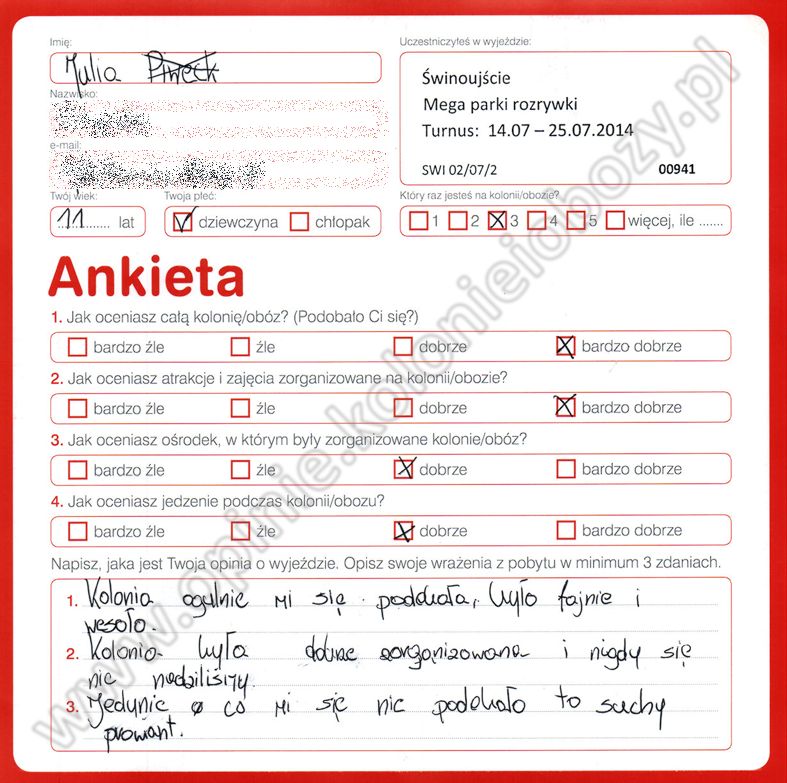 Imię:
Julia Piweck
Nazwisko:
e-mail:
Twój wiek:
11 lat
Twoja płeć:
dziewczyna chłopak
Uczestniczyłeś w wyjeździe:
Świnoujście
Mega parki rozrywki
Turnus: 14.07 – 25.07.2014
SWI 02/07/2 00941
Który raz jesteś na kolonii/obozie?
1 2 3 4 5 więcej, ile .......
Ankieta
1. Jak oceniasz całą kolonię/obóz? (Podobało Ci się?)
bardzo źle źle dobrze bardzo dobrze
2. Jak oceniasz atrakcje i zajęcia zorganizowane na kolonii/obozie?
bardzo źle źle dobrze bardzo dobrze
3. Jak oceniasz ośrodek, w którym były zorganizowane kolonie/obóz?
bardzo źle źle dobrze bardzo dobrze
4. Jak oceniasz jedzenie podczas kolonii/obozu?
bardzo źle źle dobrze bardzo dobrze
Napisz, jaka jest Twoja opinia o wyjeździe. Opisz swoje wrażenia z pobytu w minimum 3 zdaniach.
1. Kolonia ogulnie mi się podobała, było fajnie i
wesoło.
2. Kolonia była dobrze zorganizowana i nigdy się
nie nudziliśmy.
3. Jedynie co mi się nie podobało to suchy
prowiant.
www.opinie.kolonieiobozy.pl